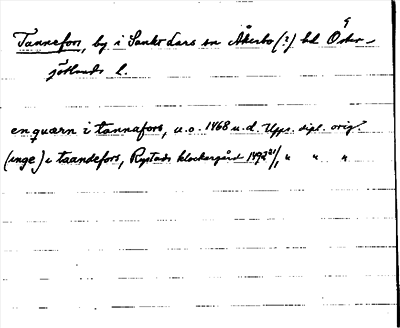 Tannefors, by i Sankt Lars sn Åkerbo (?) hd Öster-
götlands l.
en quærn i tannafors, u.o. 1468 u.d. Upps. dipl. orig.
(inge) i taandefors, Rystads klockargård 1492 21/1 " " "